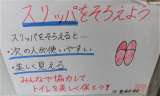 スリッパをそろえよう
スリッパをそろえると…
・次の人が使いやすい
・美しく見える
みんなで協力して
トイレを美しく保とう!!